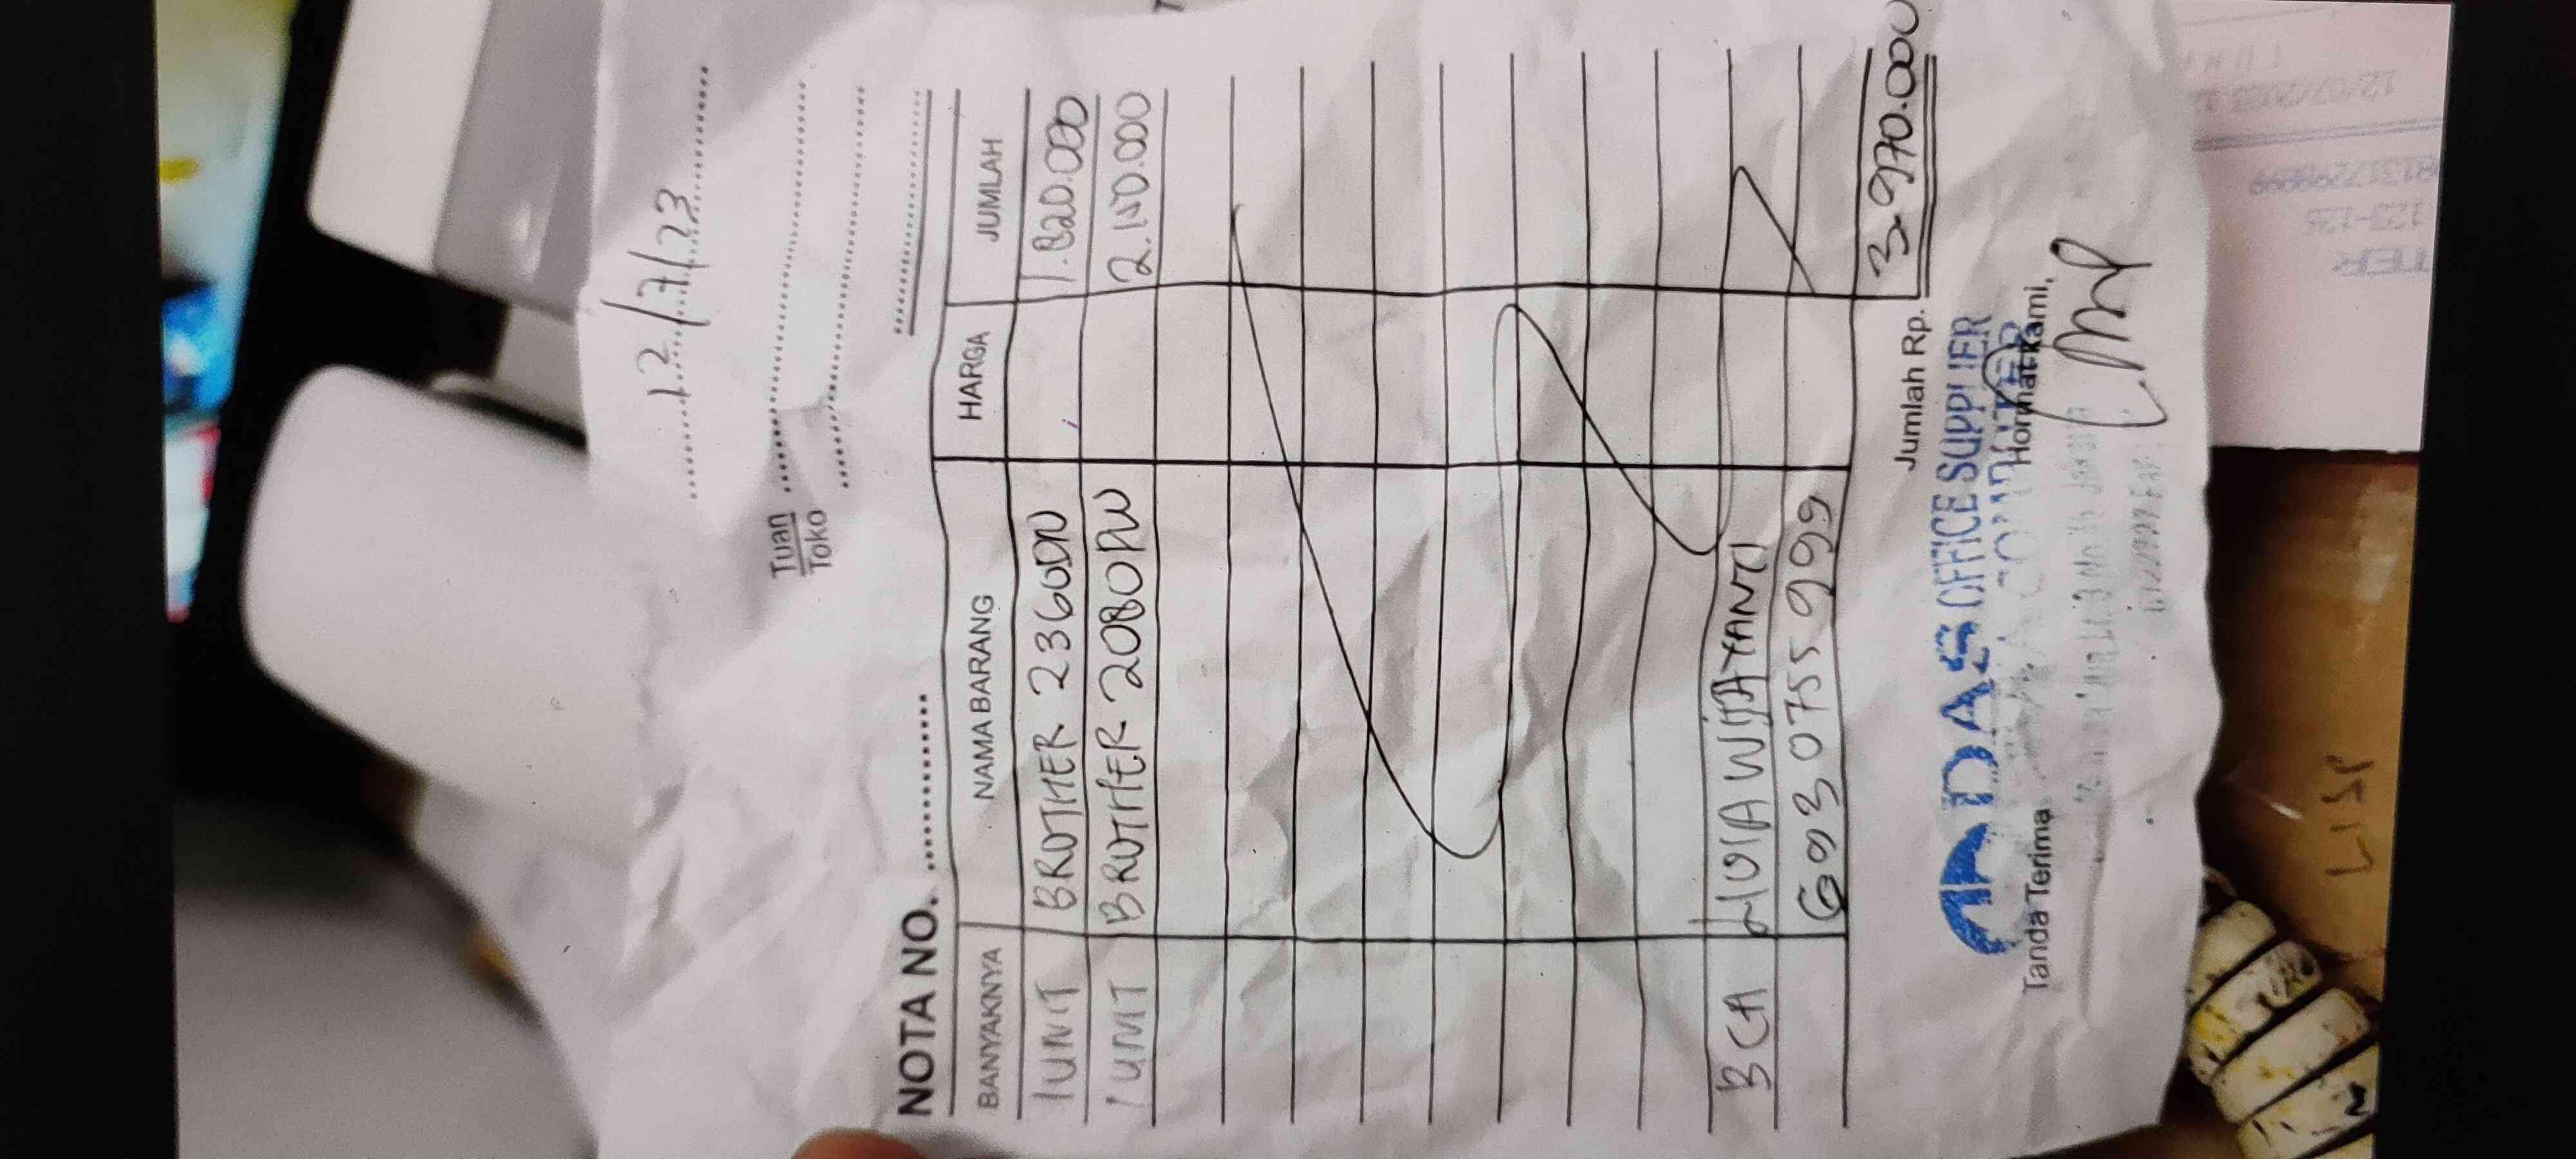 12/7/23
Tuan
Toko
NOTA NO.
BANYAKNYA NAMA BARANG HARGA JUMLAH
1 UNIT BROTHER 2360DN 1.820.000
1 UNIT BROTHER 2080DW 2.150.000
BCA LIVIA WIJAYANTI
6930755999
Jumlah Rp. 3.970.000
OFFICE SUPPLIER
COMPUTER
Tanda Terima Hormat kami,